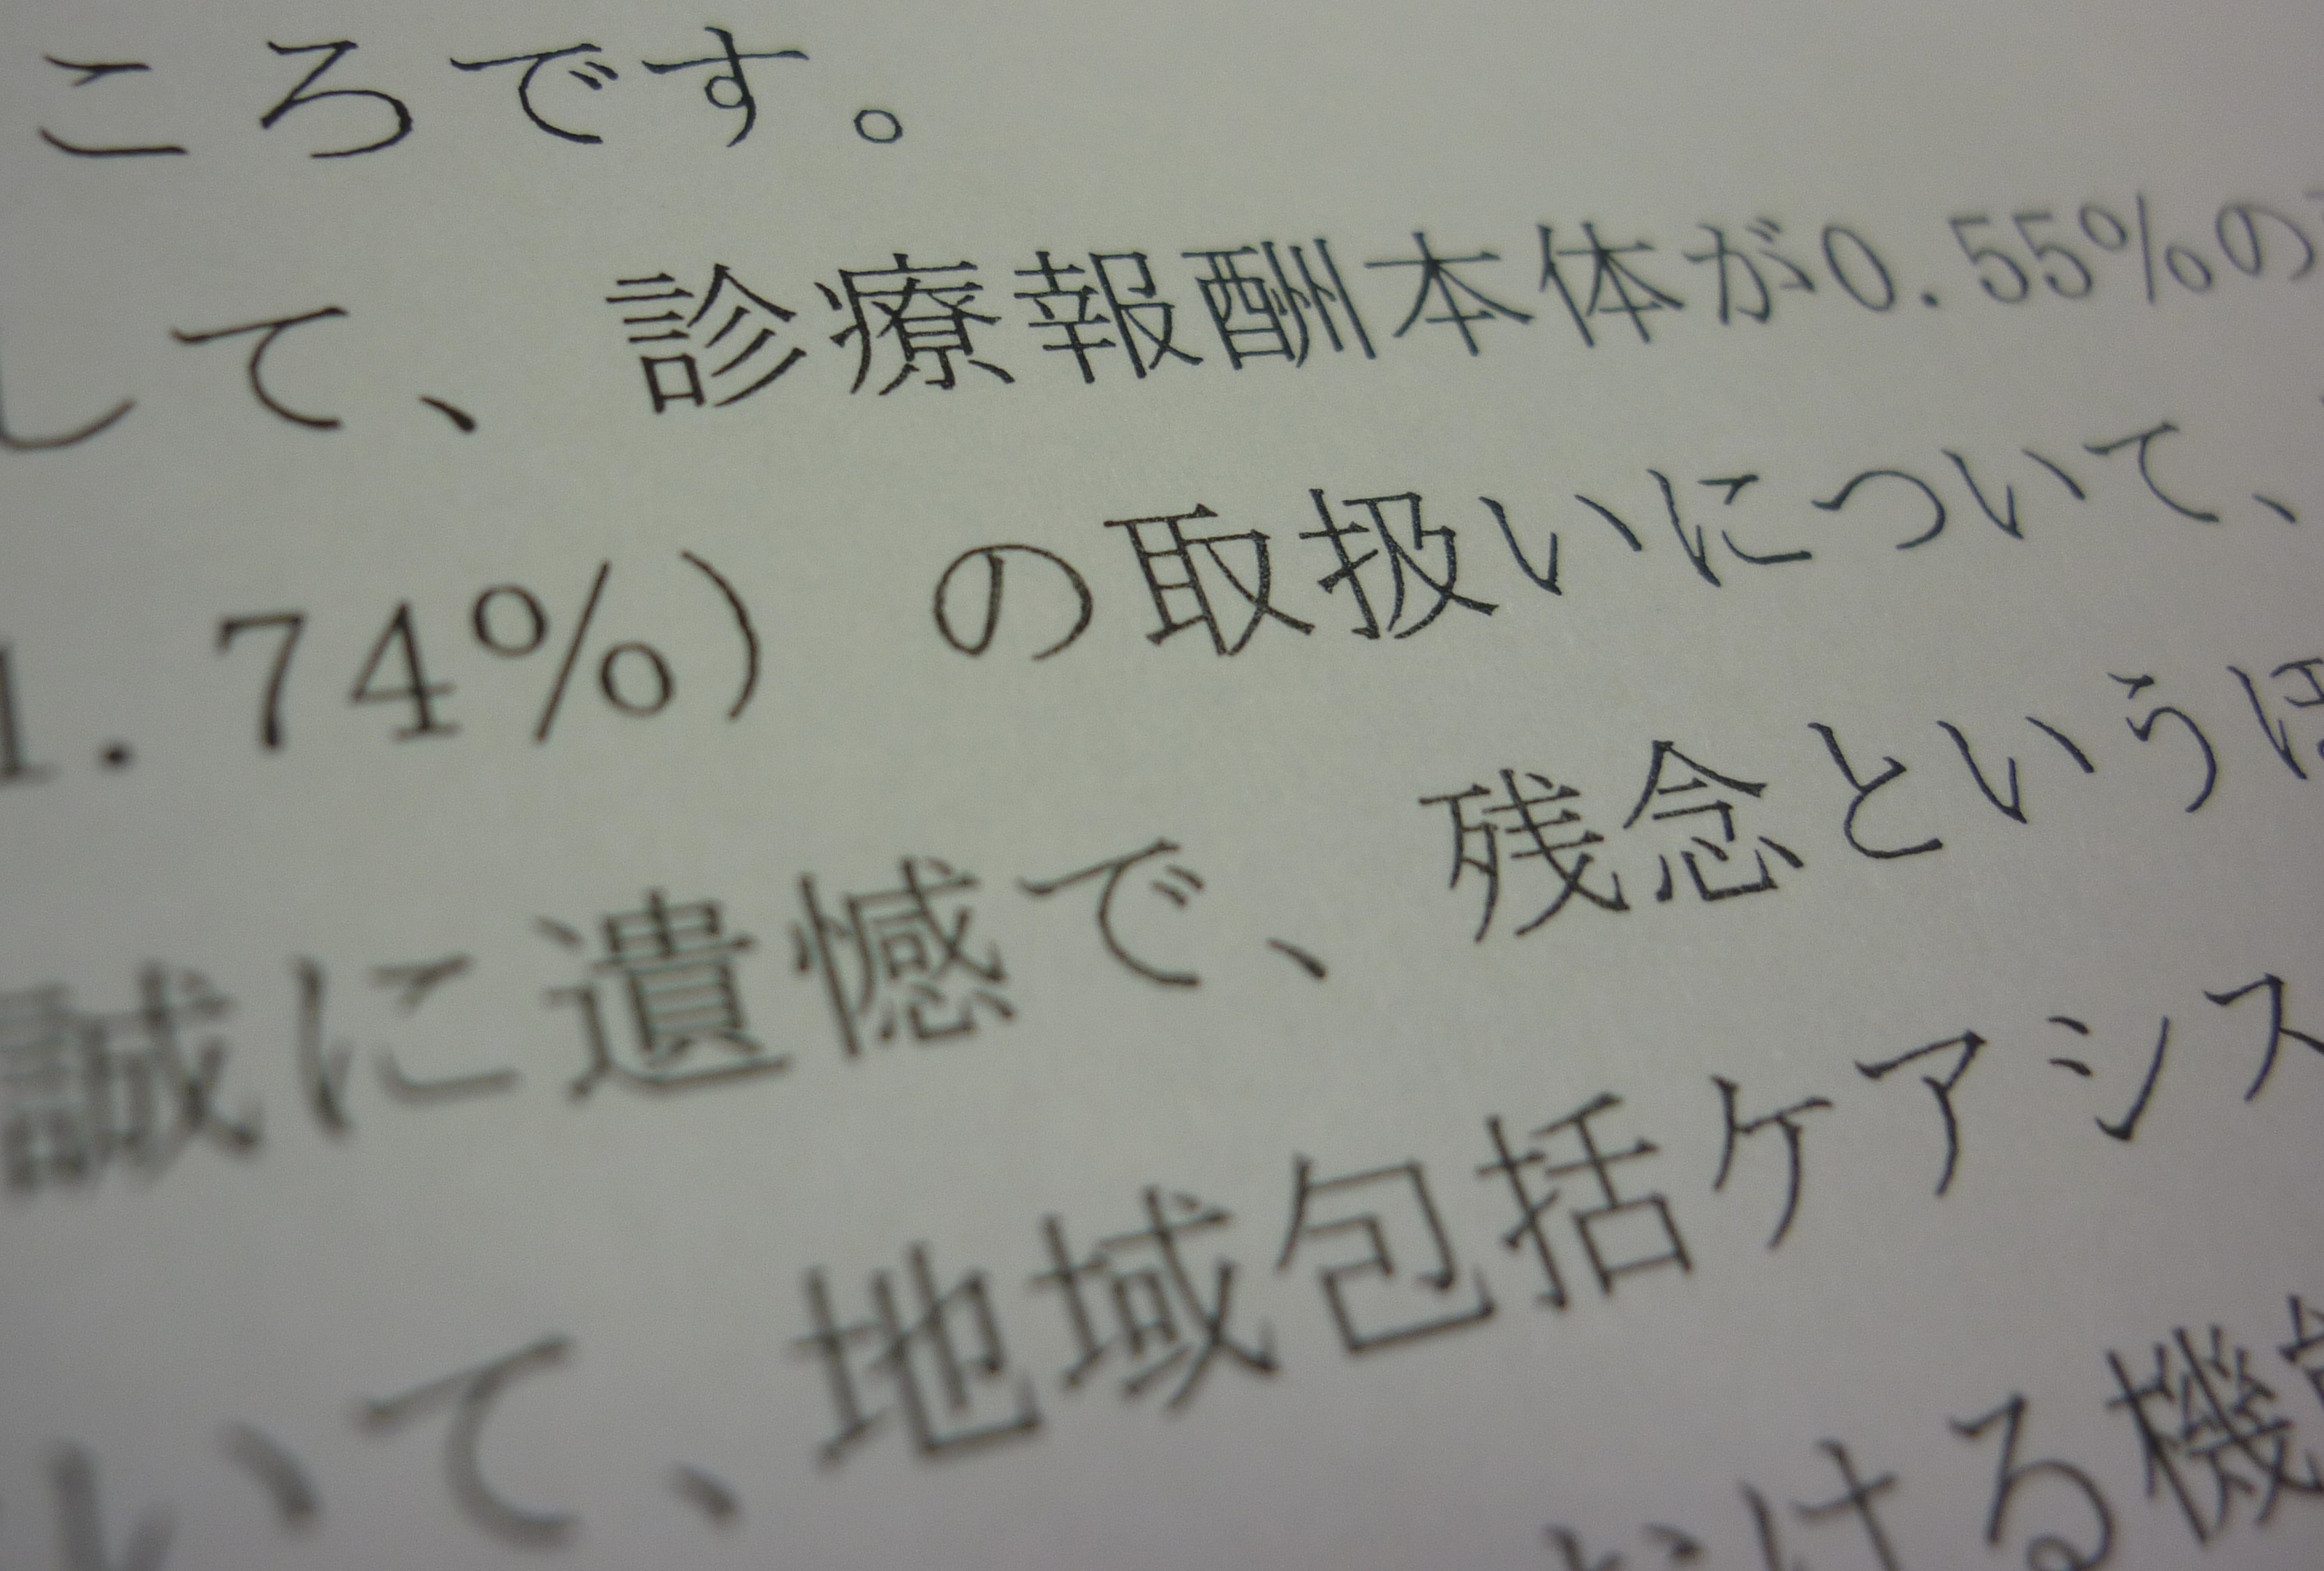 ころです。
して、診療報酬本体が0.55%の
1.74%）の取扱いについて、
誠に遺憾で、残念というほ
いて、地域包括ケアシス
おける機能